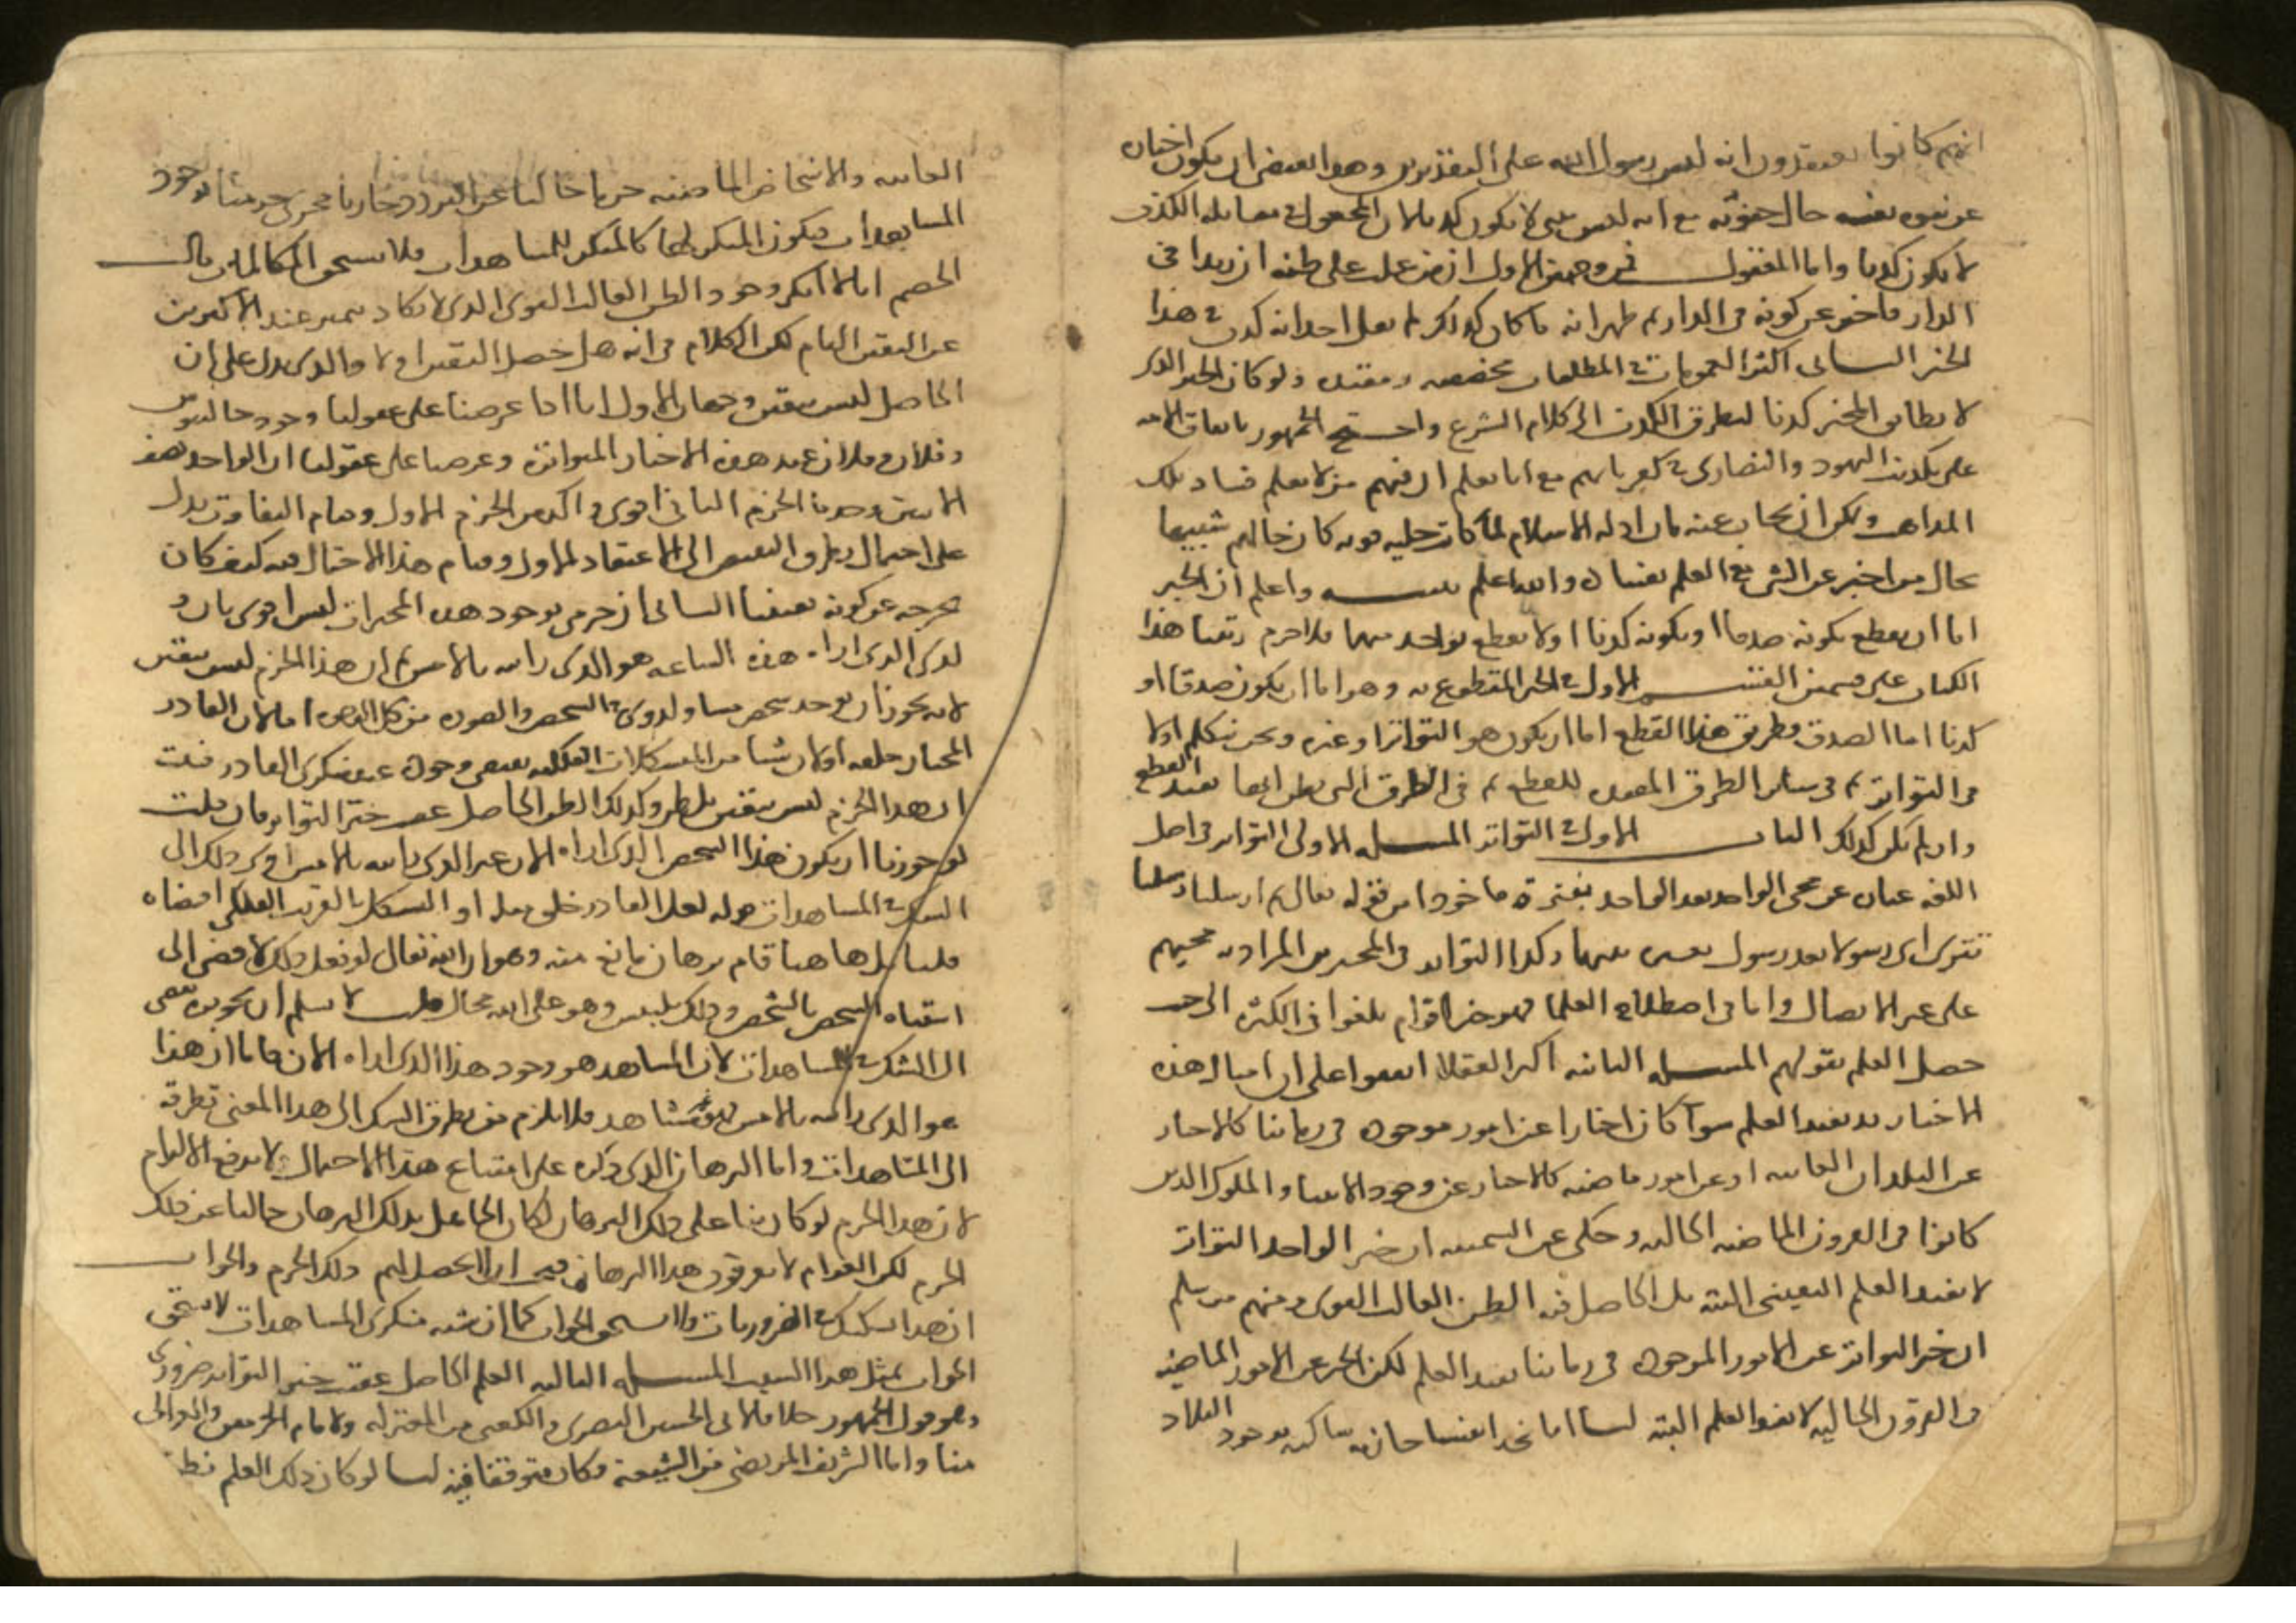 انهم كانوا يعتقدون انه ليس رسول الله على التقديرين وهو يقتضى ان يكون اخباره
عن نبوة نفسه حال جنونه مع انه ليس بنبى لا يكون كذبا لان المجعول فى مقابلة الكذب
لا يكون كذبا واما المعقول فمن وجهين الاول ان من غلب على ظنه ان زيدا فى
الدار فاخبر عن كونه فى الدار ثم ظهر انه ما كان كذلك لم يقل احد انه كذب فى هذا
الخبر الثانى اكثر العمومات والمطلقات مخصصة ومقيدة ولو كان الخبر الذى
لا يطابق المخبر كذبا لتطرق الكذب الى كلام الشرع واحتج الجمهور باتفاق الامة
على تكذيب اليهود والنصارى فى كفرياتهم مع انا نعلم ان فيهم من لا يعلم فساد تلك
المذاهب ويمكن ان يجاب عنه بان ادلة الاسلام لما كانت جلية قوية كان حالهم شبيها
بحال من اخبر عن الشى مع العلم بفساده والله اعلم واعلم ان الخبر
اما ان يقطع بكونه صدقا او بكونه كذبا او لا يقطع بواحد منهما فلا جرم رتبنا هذا
الكتاب على قسمين القسم الاول فى الخبر المقطوع به وهو اما ان يكون صدقا او
كذبا اما الصدق فطريق هذا القطع اما ان يكون هو التواتر او غيره ونحن نتكلم اولا
فى التواتر ثم فى سائر الطرق المفيدة للقطع ثم فى الطرق التى يظن انها تفيد القطع
وان لم تكن كذلك الباب الاول فى التواتر المسلة الاولى التواتر فى اصل
اللغة عبارة عن مجى الواحد بعد الواحد بفترة ماخوذا من قوله تعالى ثم ارسلنا رسلنا
تترى اى رسولا بعد رسول بفترة بينهما وكذا التواتر فى المخبرين المراد به مجيهم
على غير الاتصال واما فى اصطلاح العلما فهو خبر اقوام بلغوا فى الكثرة الى حيث
حصل العلم بقولهم المسلة الثانية اكثر العقلا اتفقوا على ان امثال هذه
الاخبار قد تفيد العلم سوآ كان اخبارا عن امور موجودة فى زماننا كالاخبار
عن البلدان الغائبة او عن امور ماضية كالاخبار عن وجود الانبيا والملوك الذين
كانوا فى القرون الماضية الخالية وحكى عن السمنية ان خبر الواحد التواتر
لا يفيد العلم اليقينى البتة بل الحاصل فيه الظن الغالب القوى ومنهم من سلم
ان خبر التواتر عن الامور الموجودة فى زماننا يفيد العلم لكن الخبر عن الامور الماضية
فى القرون الخالية لا يفيد العلم البتة لنا انا نجد انفسنا جازمة ساكنة بوجود البلاد
الغائبة والاشخاص الماضية جزما خاليا عن التردد جاريا مجرى جزمنا بوجود
المشاهدات فيكون المنكر لها كالمنكر للمشاهدات فلا يستحق المكالمة قال
الخصم انا لا انكر وجود الظن الغالب القوى الذى لا يكاد يتميز عند الاكثرين
عن اليقين التام لكن الكلام فى انه هل حصل اليقين ام لا والذى يدل على ان
الحاصل ليس بيقين وجهان الاول انا اذا عرضنا على عقولنا وجود جالينوس
وفلان وفلان عند هذه الاخبار المتواترة وعرضنا على عقولنا ان الواحد نصف
الاثنين وجدنا الجزم الثانى اقوى واكد من الجزم الاول وقيام التفاوت يدل
على احتمال تطرق النقيض الى الاعتقاد الاول وقيام هذا الاحتمال فيه كيف كان
يخرجه عن كونه يقينا الثانى ان جزمى بوجود هذه المخبرات ليس اقوى بان
لدى الذى اراه هذه الساعة هو الذى رايته بالامس ثم ان هذا الجزم ليس بيقين
لانه يجوز ان يوجد شخص مساو لذوى فى الشخص والصورة من كل الوجوه اما لان القادر
المختار خلقه او لان شيئا من التشكلات الفلكية يقتضى وجوده عند منكرى القادر فثبت
ان هذا الجزم ليس بيقين بل ظن وكذلك الظن الحاصل عند خبر التواتر فان قلت
لو جوزنا ان يكون هذا الشخص الذى اراه الان غير الذى رايته بالامس ادى ذلك الى
الشك فى المشاهدات قوله لعل القادر خلق مثله او التشكل الغريب الفلكى اقتضاه
قلنا بل هاهنا قام برهان مانع منه وهو ان الله تعالى لو فعل ذلك لافضى الى
اشتباه الشخص بالشخص وذلك تلبيس وهو على الله محال قلت لا نسلم ان تجويزه يفضى
الى الشك فى المشاهدات لان المشاهد هو وجود هذا الذى اراه الان فاما ان هذا
هو الذى رايته بالامس فهو غير مشاهد فلا يلزم من تطرق الشك الى هذا المعنى تطرقه
الى المشاهدات واما البرهان الذى ذكره على امتناع هذا الاحتمال لا يدفع الالزام
لان هذا الجزم لو كان بناء على ذلك البرهان لكان الجاهل بذلك البرهان خاليا عن ذلك
الجزم لكن العوام لا يعرفون هذا البرهان فيجب ان لا يحصل لهم ذلك الجزم والجواب
ان هذا تشكيك فى الضروريات فلا يستحق الجواب كما ان شبه منكرى المشاهدات لا تستحق
الجواب لمثل هذا السبب المسلة الثالثة العلم الحاصل عقيب خبر التواتر ضرورى
وهو قول الجمهور خلافا لابى الحسين البصرى والكعبى من المعتزلة ولامام الحرمين والغزالى
منا واما الشريف المرتضى من الشيعة فكان متوقفا فيه لنا لو كان ذلك العلم نظ